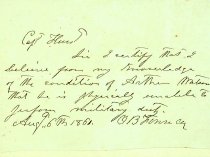 Capt Hurd
Sir I certify that I
believe from my knowledge
of the condition of Arthur Watson
that he is physically unable to
perform military duty
Aug 6th 1861